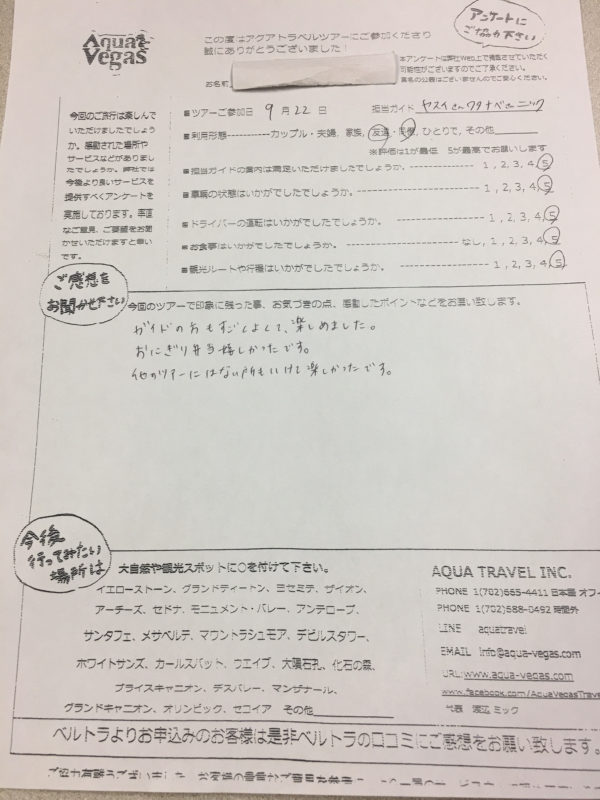 Aqua Vegas
この度はアクアトラベルツアーにご参加くださり
誠にありがとうございました！
アンケートに
ご協力下さい
本アンケートは弊社Web上で掲載させていただく
可能性がございますのでご了承ください。
実名の公表はございませんのでご安心ください。
お名前
今回のご旅行は楽しんで
いただけましたでしょう
か。感動された場所や
サービスなどがありまし
たでしょうか。弊社では
今後より良いサービスを
提供すべくアンケートを
実施しております。率直
なご意見、ご要望をお聞
かせいただけますと幸い
です。
■ツアーご参加日 9月22日 担当ガイド ヤスイさんワタナベさんニック
■利用形態-----------カップル・夫婦, 家族, 友達・同僚, ひとりで, その他
※評価は1が最低 5が最高でお願いします
■担当ガイドの案内は満足いただけましたでしょうか。---------------- 1, 2, 3, 4, 5
■車輌の状態はいかがでしたでしょうか。---------------- 1, 2, 3, 4, 5
■ドライバーの運転はいかがでしたでしょうか。---------------- 1, 2, 3, 4, 5
■お食事はいかがでしたでしょうか。---------------- なし, 1, 2, 3, 4, 5
■観光ルートや行程はいかがでしたでしょうか。---------------- 1, 2, 3, 4, 5
ご感想を
お聞かせ下さい
今回のツアーで印象に残った事、お気づきの点、感動したポイントなどをお願い致します。
ガイドの方もすごくよくて、楽しめました。
おにぎり弁当嬉しかったです。
他のツアーにはない所もいけて楽しかったです。
今後
行ってみたい
場所は
大自然や観光スポットに○を付けて下さい。
イエローストーン、グランドティートン、ヨセミテ、ザイオン、
アーチーズ、セドナ、モニュメント・バレー、アンテロープ、
サンタフェ、メサベルデ、マウントラシュモア、デビルスタワー、
ホワイトサンズ、カールスバット、ウエイブ、大隕石孔、化石の森、
ブライスキャニオン、デスバレー、マンザナール、
グランドキャニオン、オリンピック、セコイア その他
AQUA TRAVEL INC.
PHONE 1(702)665-4411 日本語 オフ
PHONE 1(702)588-0492 時間外
LINE aquatravel
EMAIL info@aqua-vegas.com
URL:www.aqua-vegas.com
www.facebook.com/AquaVegasTrave
代表 渡辺 ミック
ベルトラよりお申込みのお客様は是非ベルトラの口コミにご感想をお願い致します。